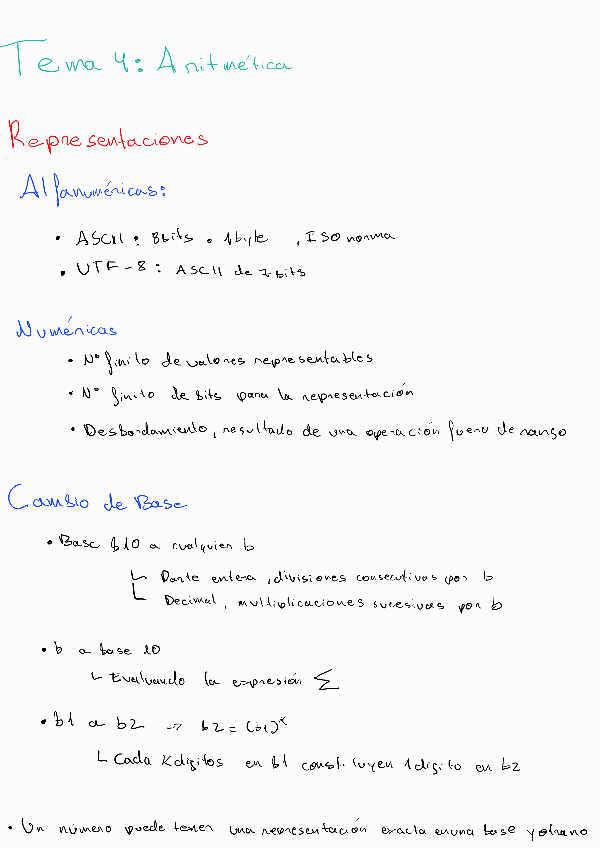 Tema 4: Aritmética
Representaciones
Alfanuméricas:
• ASCII: 8bits o 1byte, ISO norma
• UTF-8: ASCII de 7 bits
Numéricas
• Nº finito de valores representables
• Nº finito de bits para la representación
• Desbordamiento, resultado de una operación fuera de rango
Cambio de Base
• Base 10 a cualquier b
└ Parte entera, divisiones consecutivas por b
└ Decimal, multiplicaciones sucesivas por b
• b a base 10
└ Evaluando la expresión Σ
• b1 a b2 -> b2 = (b1)^k
└ Cada K digitos en b1 constituyen 1 digito en b2
• Un número puede tener una representación exacta en una base y otra no